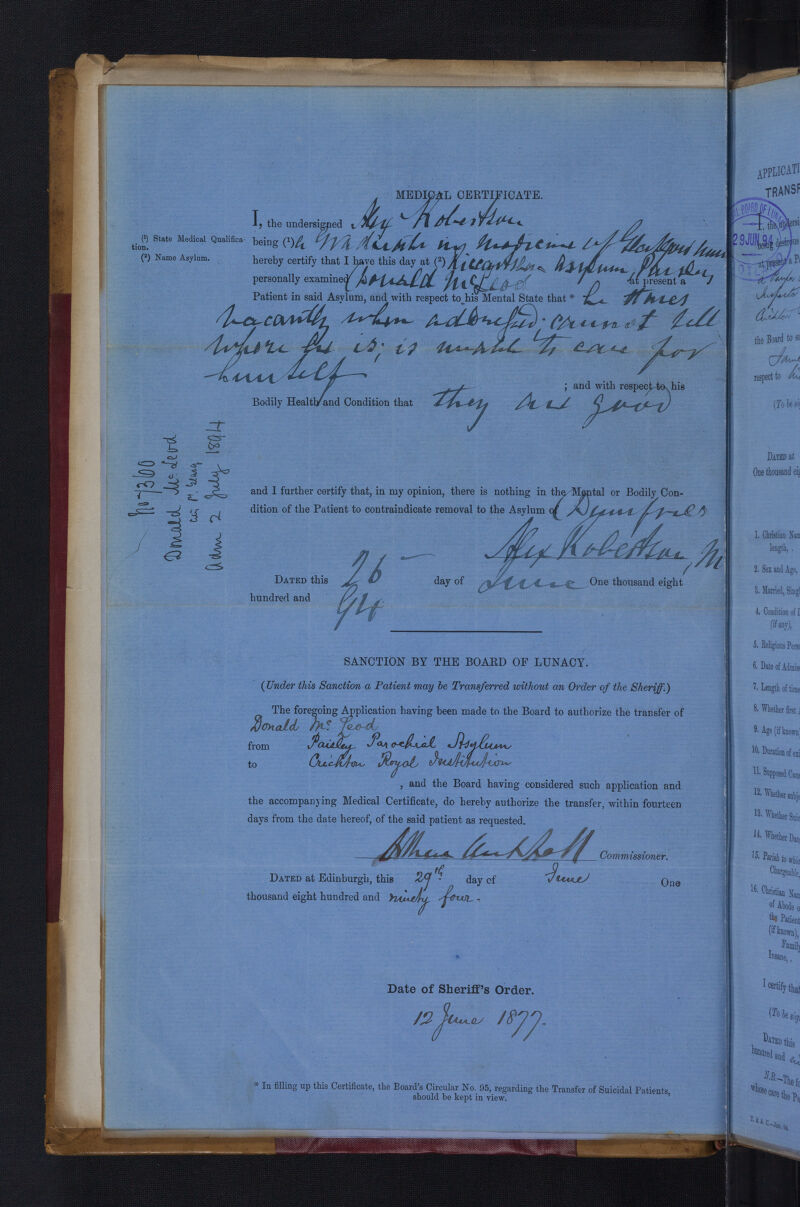 MEDICAL CERTIFICATE.
I, the undersigned Alex Robertson
(1) State Medical Qualification.
(2) Name Asylum.
being (1) a Graduate in Medicine of Glasgow
hereby certify that I have this day at (2) Riccartsbar Asylum, Paisley,
personally examined Donald McLeod at present a
Patient in said Asylum, and with respect to his Mental State that * he stares
vacantly when addressed; cannot tell
where he is; is unable to care for
himself
; and with respect to his
Bodily Health and Condition that they are good
No 7366
Donald Mc Leod
adm 2 July 1894
and I further certify that, in my opinion, there is nothing in the Mental or Bodily Con-
dition of the Patient to contraindicate removal to the Asylum of Dumfries
Alex Robertson, M
DATED this 26 day of June One thousand eight
hundred and 94
SANCTION BY THE BOARD OF LUNACY.
(Under this Sanction a Patient may be Transferred without an Order of the Sheriff.)
The foregoing Application having been made to the Board to authorize the transfer of
Donald Mc Leod
from Paisley Parochial Asylum
to Crichton Royal Institution
, and the Board having considered such application and
the accompanying Medical Certificate, do hereby authorize the transfer, within fourteen
days from the date hereof, of the said patient as requested.
Arthur Mitchell Commissioner.
DATED at Edinburgh, this 29th day of June One
thousand eight hundred and ninety four -
Date of Sheriff's Order.
12 June 1877.
* In filling up this Certificate, the Board's Circular No. 95, regarding the Transfer of Suicidal Patients,
should be kept in view.
APPLICATI
TRANSF
29 JUN 94
the Board to
respect to
(To be
DATED at
One thousand
1. Christian Nam
length, .
2. Sex and Age,
3. Married, Sing
4. Condition of
(if any),
5. Religious Pers
6. Date of Admis
7. Length of time
8. Whether first
9. Age (if known
10. Duration of
11. Supposed Caus
12. Whether
13. Whether
14. Whether
15. Parish to
Chargeable,
16. Christian Nam
of Abode
the Patient
(if known),
Family
Insane, .
I certify that
(To be
DATED this
hundred and
N.B.—The
whose care the